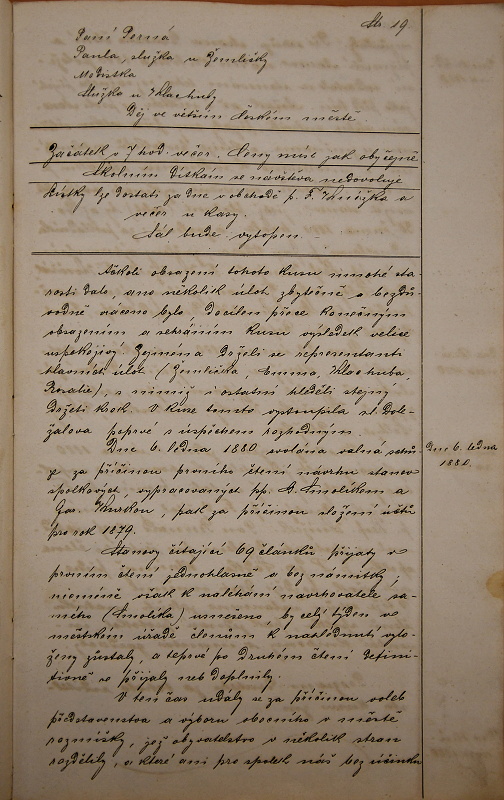 Str 19
Paní Perná
Pavla, služka u Žemličky
Modistka
Služka u Hlachuby
Děj ve větším českém městě.
Začátek v 7 hod. večer. Ceny míst jak obyčejně.
Školním dítkám se návštěva nedovoluje
Lístky lze dostati za dne v obchodě p. F. a
večer u kasy.
Sál bude vytopen.
Ačkoli obsazení tohoto kusu mnohé sta-
rosti dalo, ano několik úloh zbytečně a bezdů-
vodně váceno bylo, docílen přece konečným
obsazením a sehráním kusu výsledek velice
uspokojivý. Zejmena drželi se representanti
hlavních úloh (Žemlička, Emma, Hlachuba,
Rosalie), s nimiž i ostatní hleděli stejný
držeti krok. V kuse tomto vystoupila sl. Dole-
žalova poprvé s úspěchem rozhodným.
Dne 6. ledna 1880 svolána valná schů-
ze za příčinou prvního čtení návrhu stanov
spolkových, vypracovaných pp. A. Smolíkem a
Gav. , pak za příčinou složení účtů
pro rok 1879.
Dne 6. ledna
1880.
Stanovy čítající 69 článků přijaty v
prvním čtení jednohlasně a bez námitky;
nicméně však k naléhání navrhovatele sa-
mého (Smolíka) usneseno, by celý týden ve
městském úřadě členům k nahlédnutí vylo-
ženy zůstaly, a teprvé po druhém čtení defini-
tivně se přijaly neb doplnily.
V ten čas udály se za příčinou voleb
představenstva a výboru obecního v městě
rozmíšky, jež obyvatelstvo v několik stran
rozdělily, a které ani pro spolek náš bez účinku